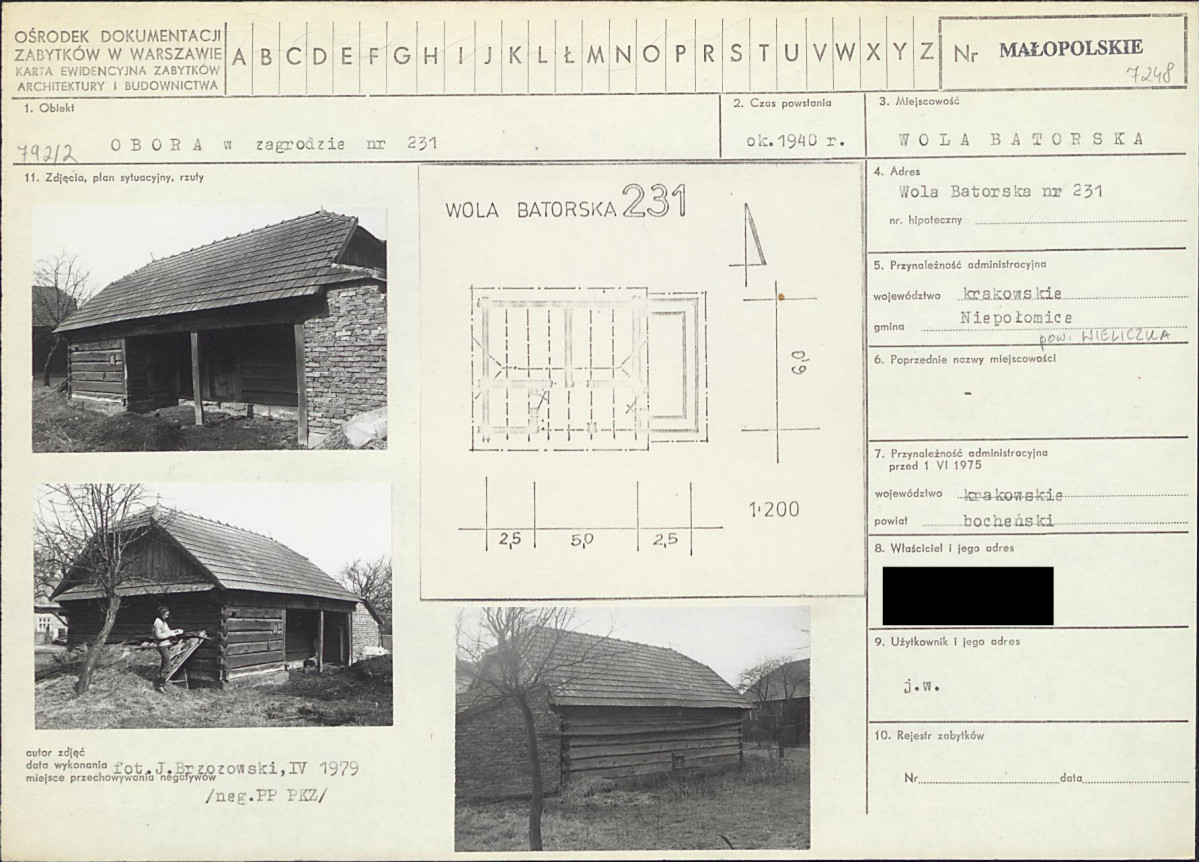 OŚRODEK DOKUMENTACJI
ZABYTKÓW W WARSZAWIE
KARTA EWIDENCYJNA ZABYTKÓW
ARCHITEKTURY I BUDOWNICTWA
A B C D E F G H I J K L Ł M N O P R S T U V W X Y Z
Nr MAŁOPOLSKIE
7248
1. Obiekt
792/2 OBORA w zagrodzie nr 231
2. Czas powstania
ok.1940 r.
3. Miejscowość
WOLA BATORSKA
11. Zdjęcia, plan sytuacyjny, rzuty
WOLA BATORSKA 231
6,0
2,5 5,0 2,5
1:200
autor zdjęć
data wykonania fot.J.Brzozowski,IV 1979
miejsce przechowywania negatywów
/neg.PP PKZ/
4. Adres
Wola Batorska nr 231
nr. hipoteczny
5. Przynależność administracyjna
województwo krakowskie
gmina Niepołomice
pow. WIELICZKA
6. Poprzednie nazwy miejscowości
-
7. Przynależność administracyjna
przed 1 VI 1975
województwo krakowskie
powiat bocheński
8. Właściciel i jego adres
9. Użytkownik i jego adres
j.w.
10. Rejestr zabytków
Nr data